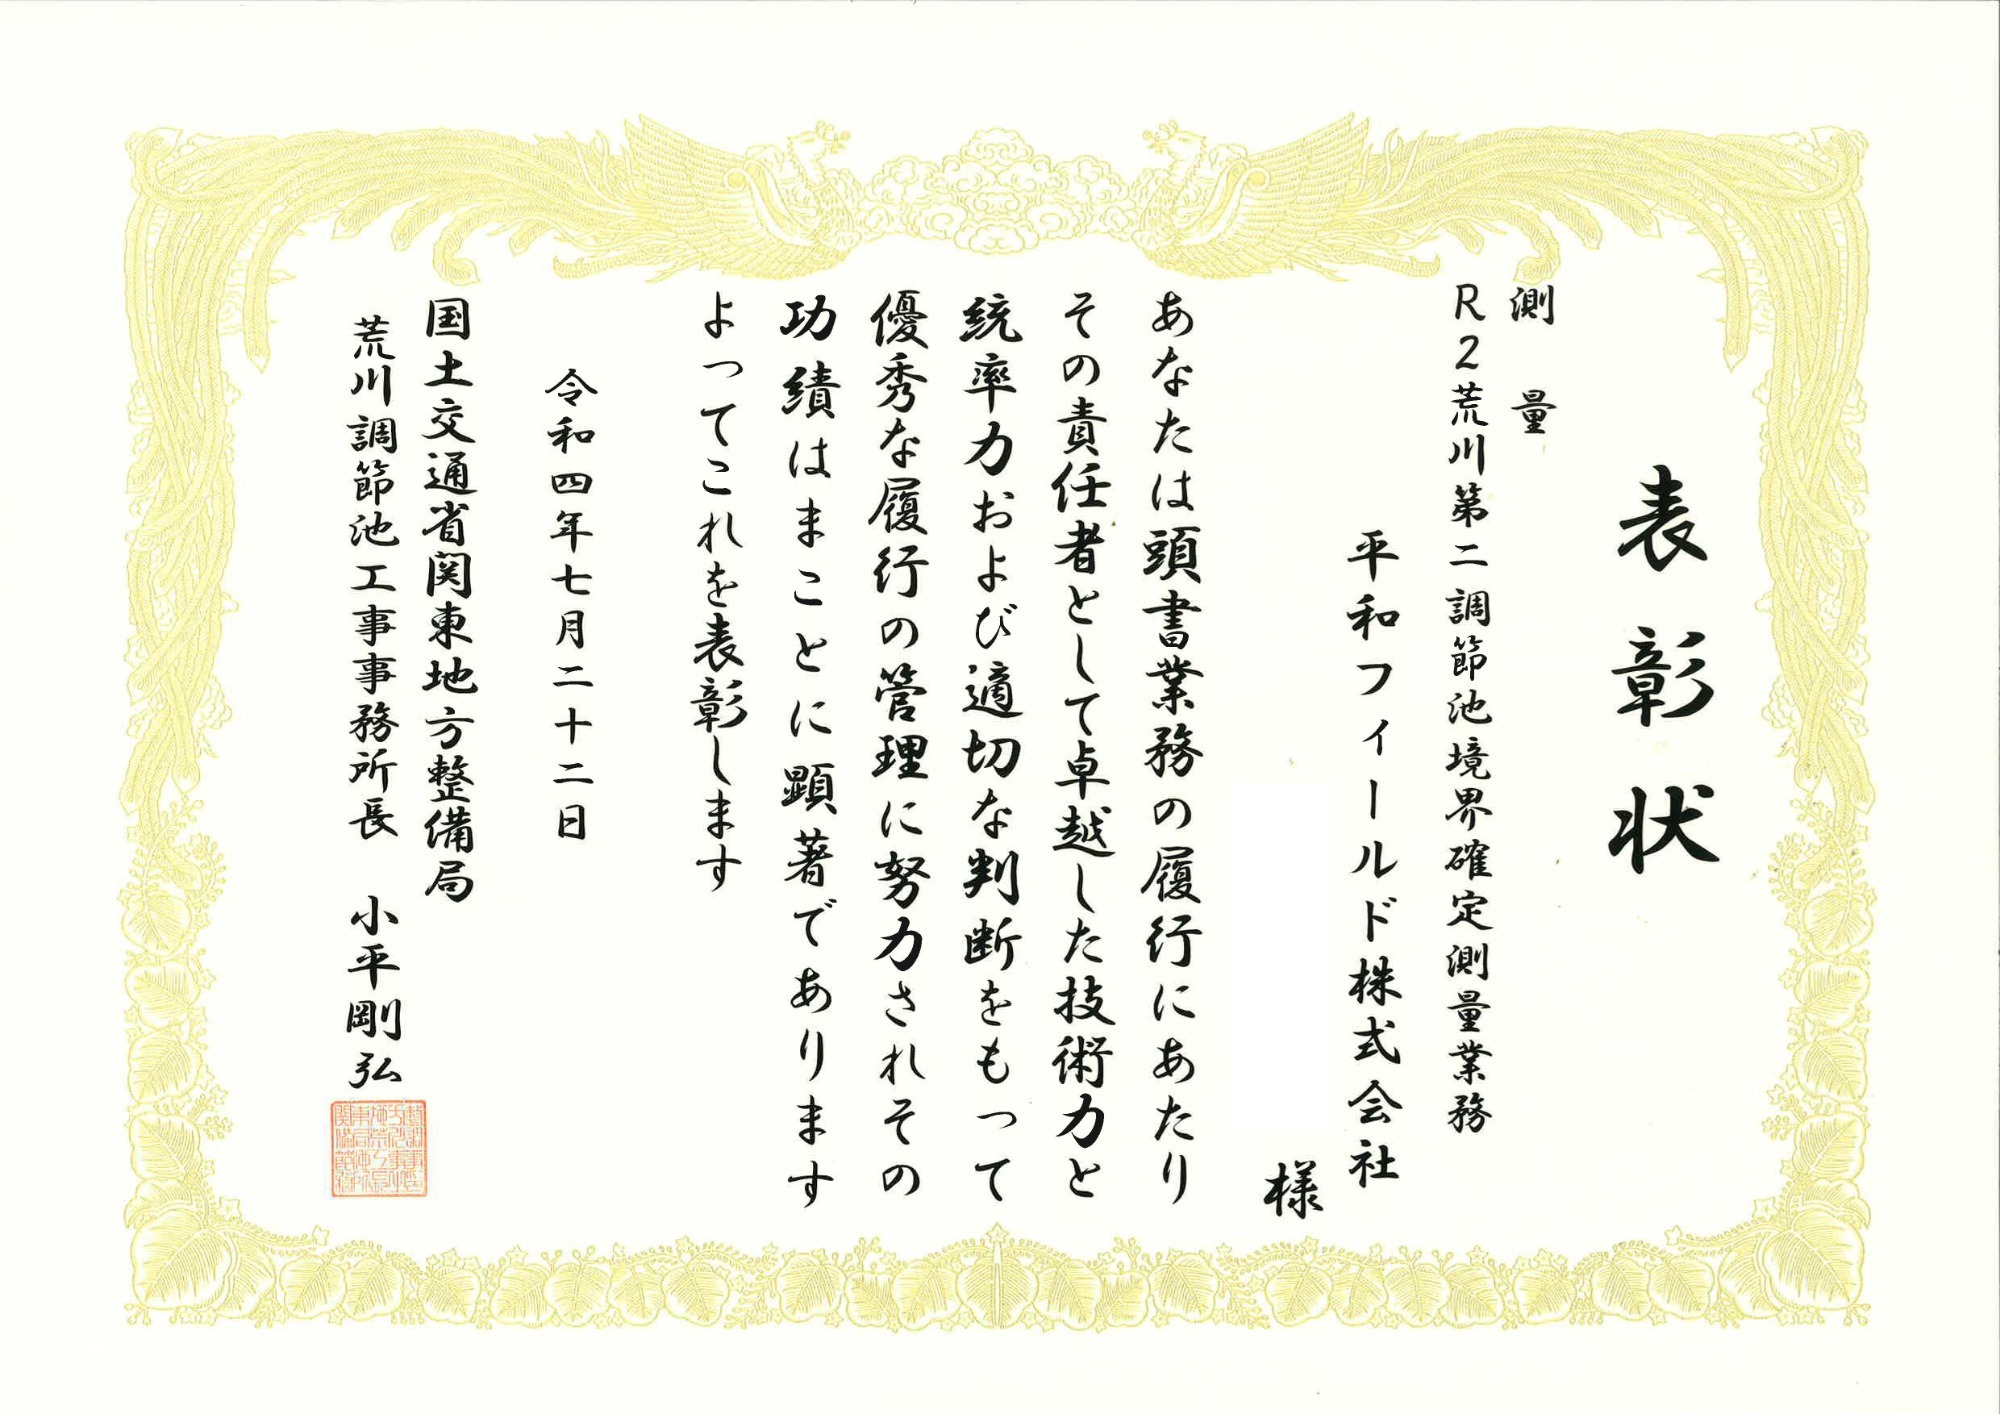 表彰状
測量
R2荒川第二調節池境界確定測量業務
平和フィールド株式会社
様
あなたは頭書業務の履行にあたり
その責任者として卓越した技術力と
統率力および適切な判断をもって
優秀な履行の管理に努力されその
功績はまことに顕著であります
よってこれを表彰します
令和四年七月二十二日
国土交通省関東地方整備局
荒川調節池工事事務所長 小平剛弘